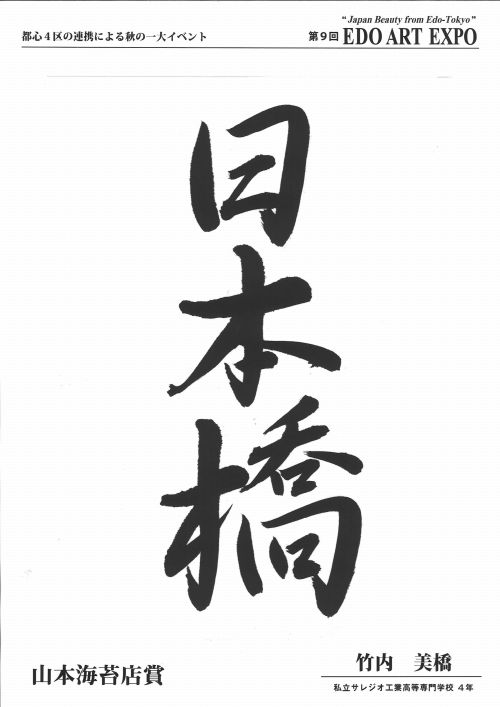 "Japan Beauty from Edo-Tokyo"
都心4区の連携による秋の一大イベント
第9回 EDO ART EXPO
日本橋
山本海苔店賞
竹内 美橋
私立サレジオ工業高等専門学校 4年